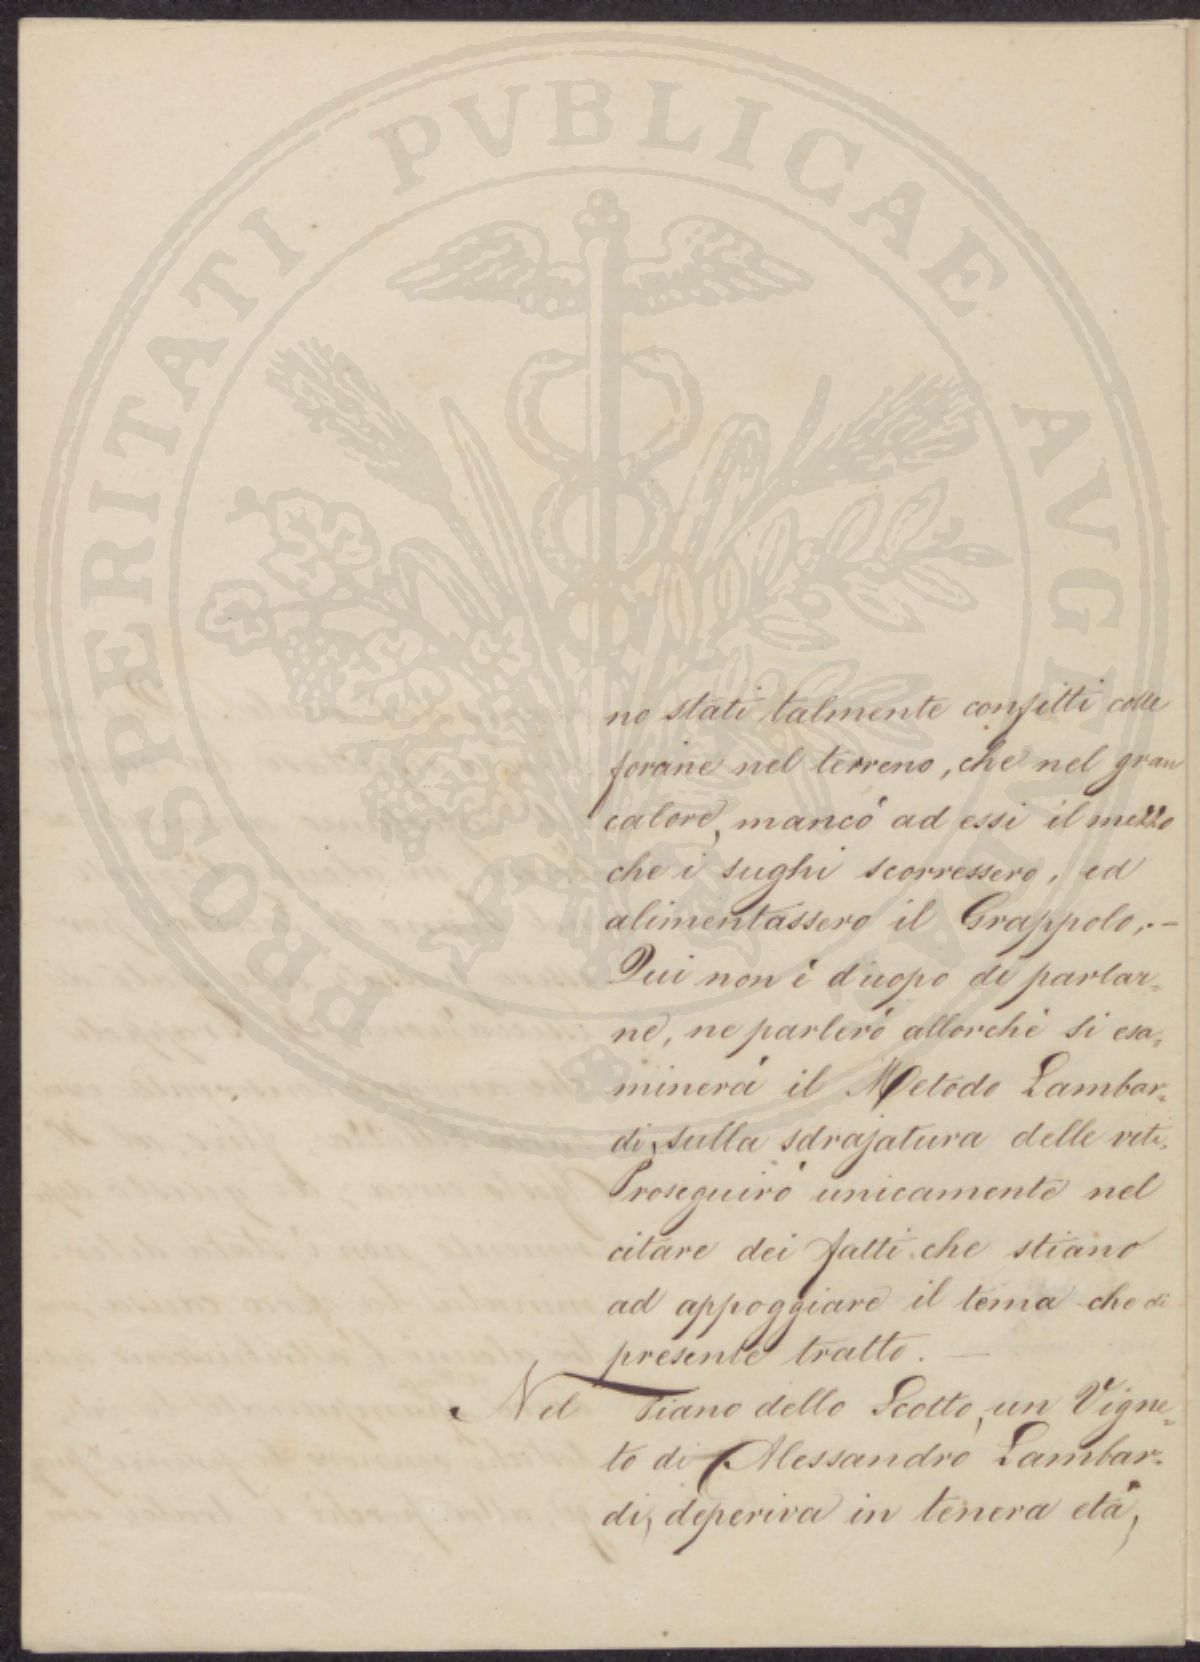 PROSPERITATI PVBLICAE AVGENDAE
no stati talmente confitti colle
forcine nel terreno, che nel gran
calore, mancò ad essi il mezzo
che i sughi scorressero, ed
alimentassero il Grappolo, –
Qui non è d'uopo di parlar„
ne, ne parlerò allorchè si esa„
minerà il Metodo Lambar„
di, sulla sdrajatura delle viti.
Proseguirò unicamente nel
citare dei fatti che stiano
ad appoggiare il tema che di
presente tratto. —
Nel Piano dello Scotto, un Vigne„
to di Alessandro Lambar„
di, deperiva in tenera età,